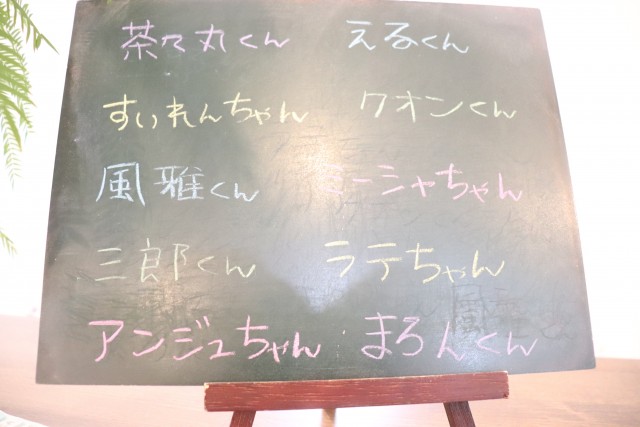 茶々丸くん えるくん
すいれんちゃん クオンくん
風雅くん ミーシャちゃん
三郎くん ラテちゃん
アンジュちゃん まろんくん